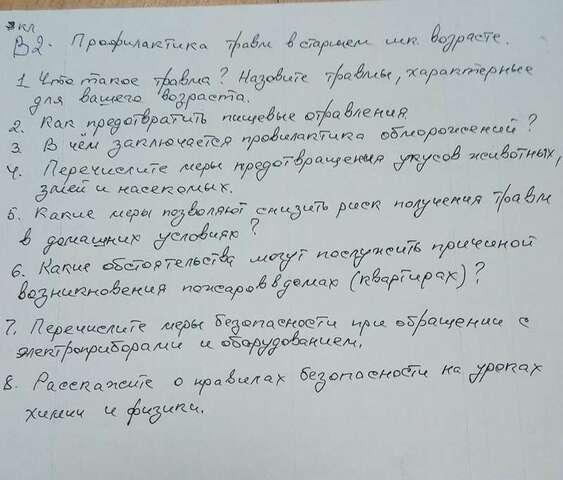 кл
В2. Профилактика травм в старшем шк. возрасте.
1 Что такое травма? Назовите травмы, характерные
для вашего возраста.
2. Как предотвратить пищевые отравления
3. В чём заключается провилактика обморожений?
4. Перечислите меры предотвращения укусов животных,
змей и насекомых.
5. Какие меры позволяют снизить риск получения травм
в домашних условиях?
6. Какие обстоятельства могут послужить причиной
возникновения пожаров в домах (квартирах)?
7. Перечислите меры безопасности при обращении с
электроприборами и оборудованием.
8. Расскажите о правилах безопасности на уроках
химии и физики.